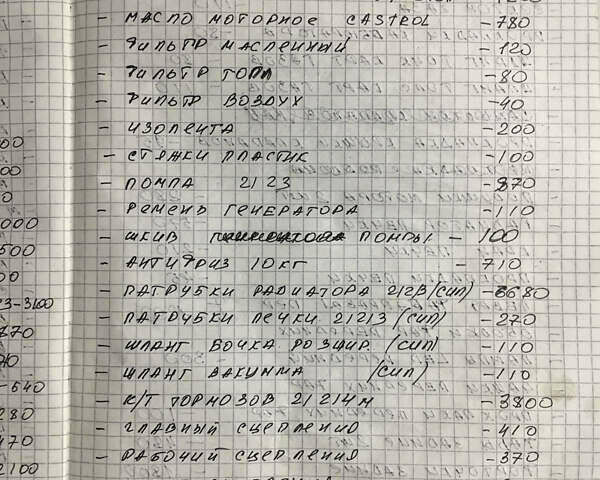 - МАСЛО МОТОРНОЕ CASTROL -780
- ФИЛЬТР МАСЛЕННЫЙ -120
- ФИЛЬТР ТОПЛ -80
- ФИЛЬТР ВОЗДУХ -40
- ИЗОЛЕНТА -200
- СТЯЖКИ ПЛАСТИК -100
- ПОМПА 2123 -870
- РЕМЕНЬ ГЕНЕРАТОРА -110
- ШКИВ ПОМПЫ - 100
- АНТИФРИЗ 10 КГ - 710
- ПАТРУБКИ РАДИАТОРА 2123 (СИЛ) -6680
- ПАТРУБКИ ПЕЧКИ 21213 (СИЛ) -270
- ШЛАНГ БОЧКА РОЗШИР. (СИЛ) -110
- ШЛАНГ ВАКУМНА (СИЛ) -110
- К/Т ТОРМОЗОВ 21214М -3800
- ГЛАВНЫЙ СЦЕПЛЕНИЮ -410
- РАБОЧИЙ СЦЕПЛЕНИЯ -370
00
00
0
000
500
00
23-3100
770
-640
280
470
2100